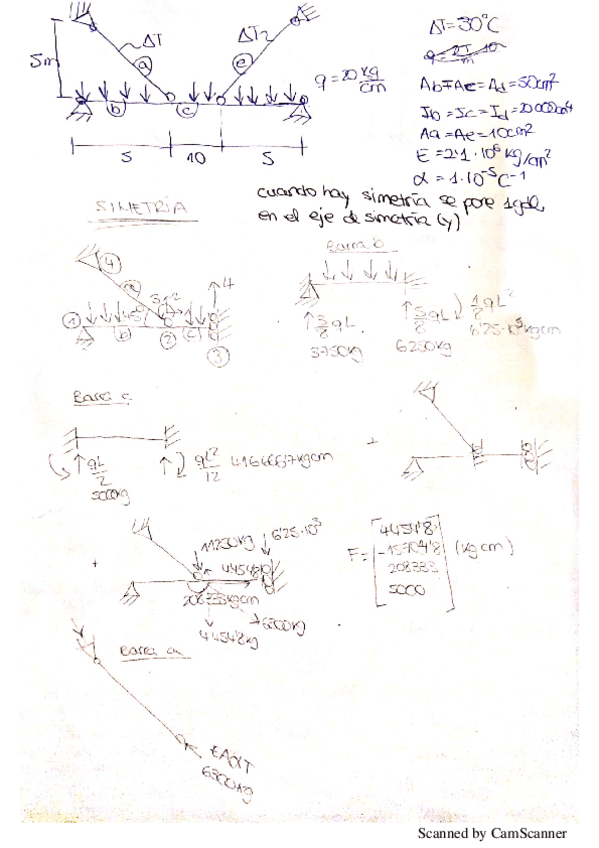 ΔT
ΔT2
a
e
5m
b
c
q=20 kg/cm
5
10
5
ΔT=30°C
Ab=Ae=Ad=50cm²
Ib=Ic=Id=20000cm4
Aa=Ae=10cm2
E=2'1·10⁶ kg/cm²
α=1·10⁻⁵C⁻¹
SIMETRÍA
cuando hay simetría se pone 1gdl
en el eje d simetría (y)
Barra b
4
a
3
2
1
4
45°
1
b
2
c
3
3/8 qL
3750kg
5/8 qL
6250kg
1/8 qL²
6'25·10⁵kgcm
Barra c
qL/2
5000kg
qL²/12
416666'7kgcm
+
+
11250kg
6'25·10³
4454'8
208333kgcm
4454'8kg
6300kg
F=
4454'8
-15704'8
208333
5000
(kgcm)
Barra a
EAαT
6300kg
Scanned by CamScanner